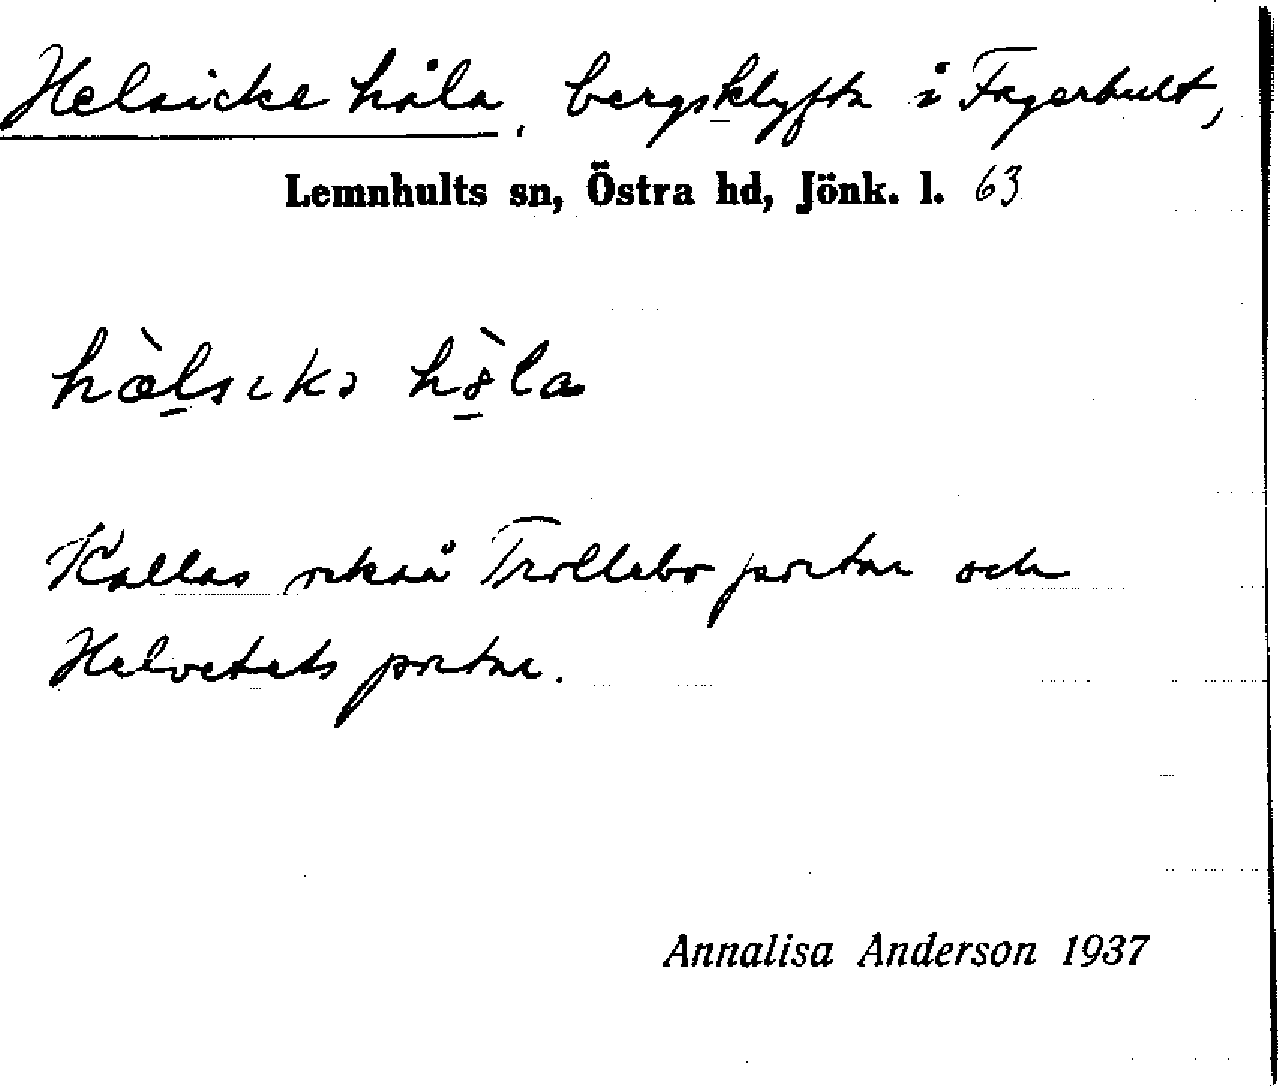 Helsicke håla, bergsklyfta i Fagerhult,
Lemnhults sn, Östra hd, Jönk. l. 63
hæ̀lsɩkə hò̱la
Kallas också Trollebo portar och
Helvetets portar.
Annalisa Anderson 1937